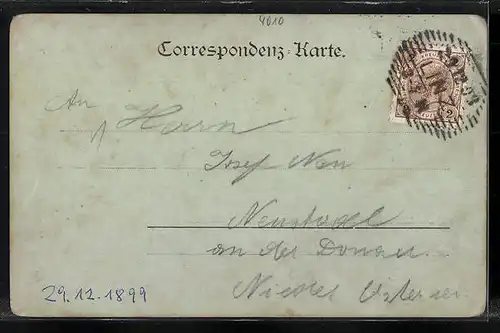 4010
Correspondenz-Karte.
LINZ
2 2
An
Herrn
Josef
Neustadtl
an der Donau
Nieder
29.12.1899